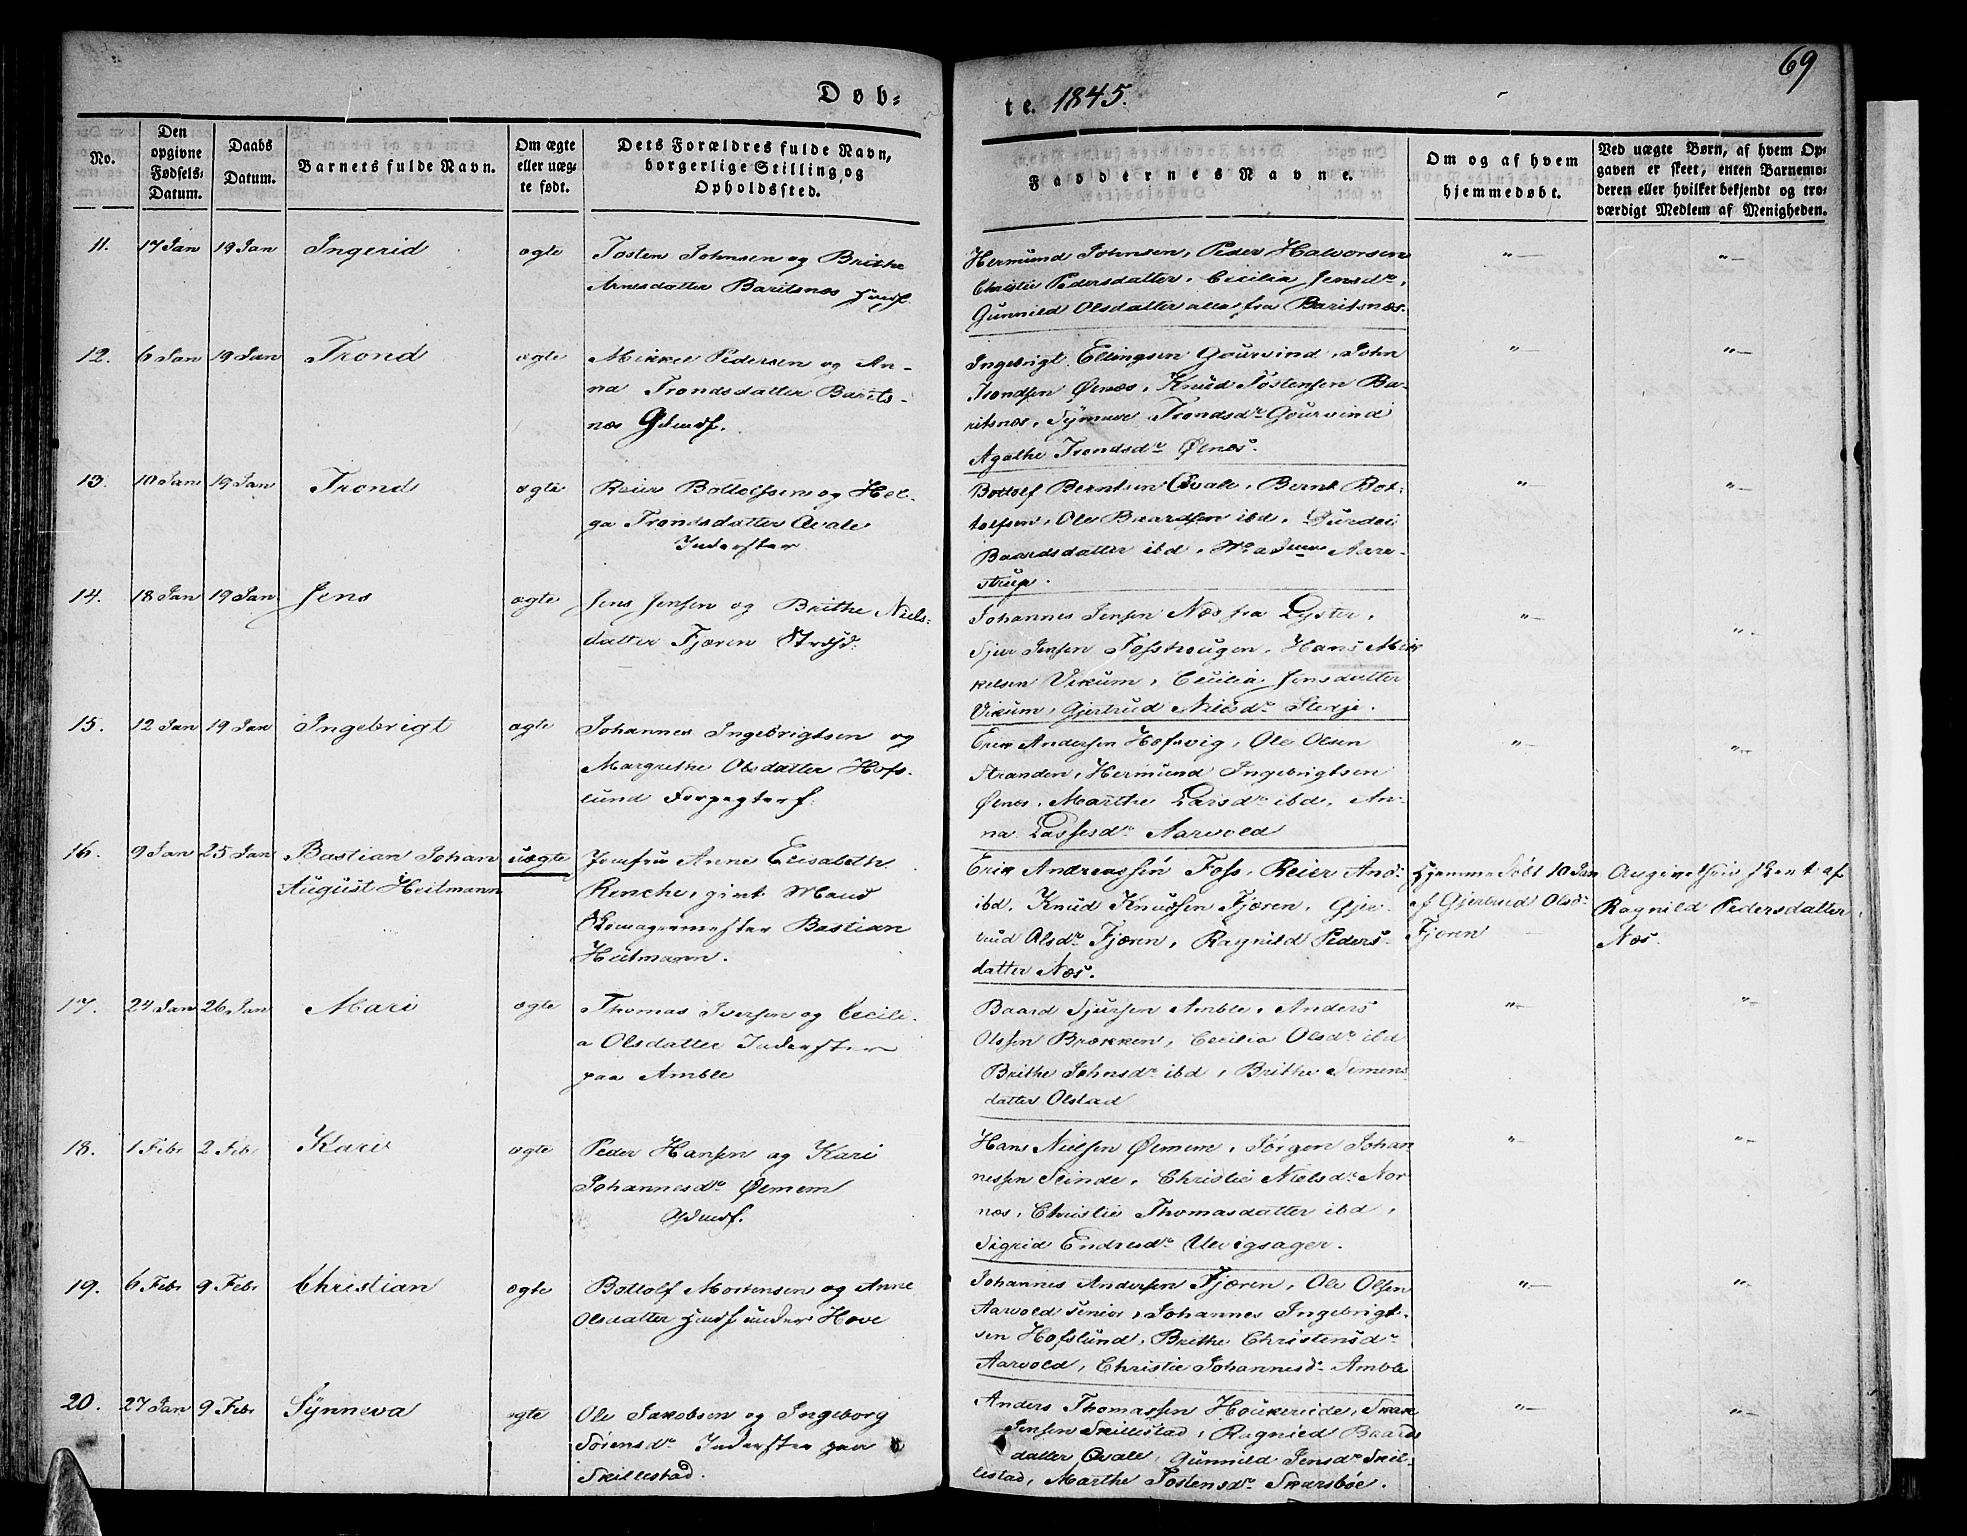 69
Døb=
te. 1845.
No.
Den opgivne Fødsels-Datum.
Daabs Datum.
Barnets fulde Navn.
Om ægte eller uægte født.
Dets Forældres fulde Navn, borgerlige Stilling og Opholdsfted.
Faddernes Navne.
Om og af hvem hjemmedøbt.
Ved uægte Børn, af hvem Opgaven er skeet, enten Barnemoderen eller hvilket bekjendt og troværdigt Medlem af Menigheden.
11. 17 Jan 19 Jan Ingerid ægte Josten Johnsen og Brithe
Arnesdatter Baritsnæs
Hermund Johnsen, Peder Halvorsen
Christie Pedersdatter, Cecilia Jensdr,
Gunnild Olsdatter alle fra Baritsnæs.
"— "—
12. 6 Jan 19 Jan Trond ægte Mikkel Pedersen og An-
na Trondsdatter Barits-
næs Gdmdf.
Ingebrigt Ellingsen Gourvind, John
Trondsen Øenæs, Knud Tostensen Ba-
ritsnæs, Trondsdr Gourvind
Agathe Trondsdr Øenæs.
"— "—
13. 10 Jan 19 Jan Trond ægte Reier Bottolfsen og Hel-
ga Trondsdatter Qvale
Inderster
Bottolf Berntsen Qvale, Bernt Bot-
tolfsen, Ole Baardsen ibd,
Baardsdatter ibd, Aare-
strup.
"— "—
14. 18 Jan 19 Jan Jens ægte Jens Jensen og Brithe Niels-
datter Fjæren Strdsd.
Johannes Jensen Næs fra Lyster,
Sjur Jensen Fosshougen, Hans Mik
kelsen Vikum, Cecilia Jensdatter
Vikum, Gjertrud Nielsdr
"— "—
15. 12 Jan 19 Jan Ingebrigt ægte Johannes Ingebrigtsen og
Margrethe Olsdatter Hofs-
lund Forpagterf.
Erik Andersen Hofsvig, Ole Olsen
Stranden, Hermund Ingebrigtsen
Øenæs, Marthe Larsdr ibd, An-
na Lassesdr Aarvold
"— "—
16. 9 Jan 25 Jan Bastian Johan uægte Jomfru Anne Elisabeth
August Heilmann
Renche, givt Mand
Skomagermester Bastian
Heilmann.
Erik Andreassen Foss, Reier Andr
ibd, Knud Knudsen Fjæren, Gjer-
trud Olsdr Fjæren, Ragnild Peders-
datter Næs.
Hjemmedøbt 10 Jan
af Gjertrud Olsdr
Fjæren
Angivelsen skeet af
Ragnild Pedersdatter
Næs.
17. 24 Jan 26 Jan Mari ægte Thomas Iversen og Cecili-
a Olsdatter Inderster
paa Amble
Baard Sjursen Amble, Anders
Olssen Brækken, Cecilia Olsdr ibd
Brithe Johnsdr ibd, Brithe Simens
datter Olstad
"— "—
18. 1 Febr 2 Febr Kari ægte Peder Hansen og Kari
Johannesdr Ølmem
Gdmdf.
Hans Nielsen Ølmem, Jørgen Johan
nessen Seinde, Christie Nielsdr Nor
næs, Christie Thomasdatter ibd,
Sigrid Endresdr Ulvigsager.
"— "—
19. 6 Febr 9 Febr Christian ægte Bottolf Mortensen og Anne
Olsdatter Hmdf under Hove
Johannes Andersen Fjæren, Ole Olsen
Aarvold senior, Johannes Ingebrigt-
sen Hofslund, Brithe Christensdr
Aarvold, Christie Johannesdr Amble
"— "—
20. 27 Jan 9 Febr Synneva ægte Ole Jakobsen og Ingeborg
Sørensdr Inderster paa
Skillestad.
Anders Thomassen Houkereide,
Jensen Skillestad, Ragnild Baards
datter Qvale, Gunnild Jensdr Skil-
lestad, Marthe Tostensdr Skarsbøe.
"— "—